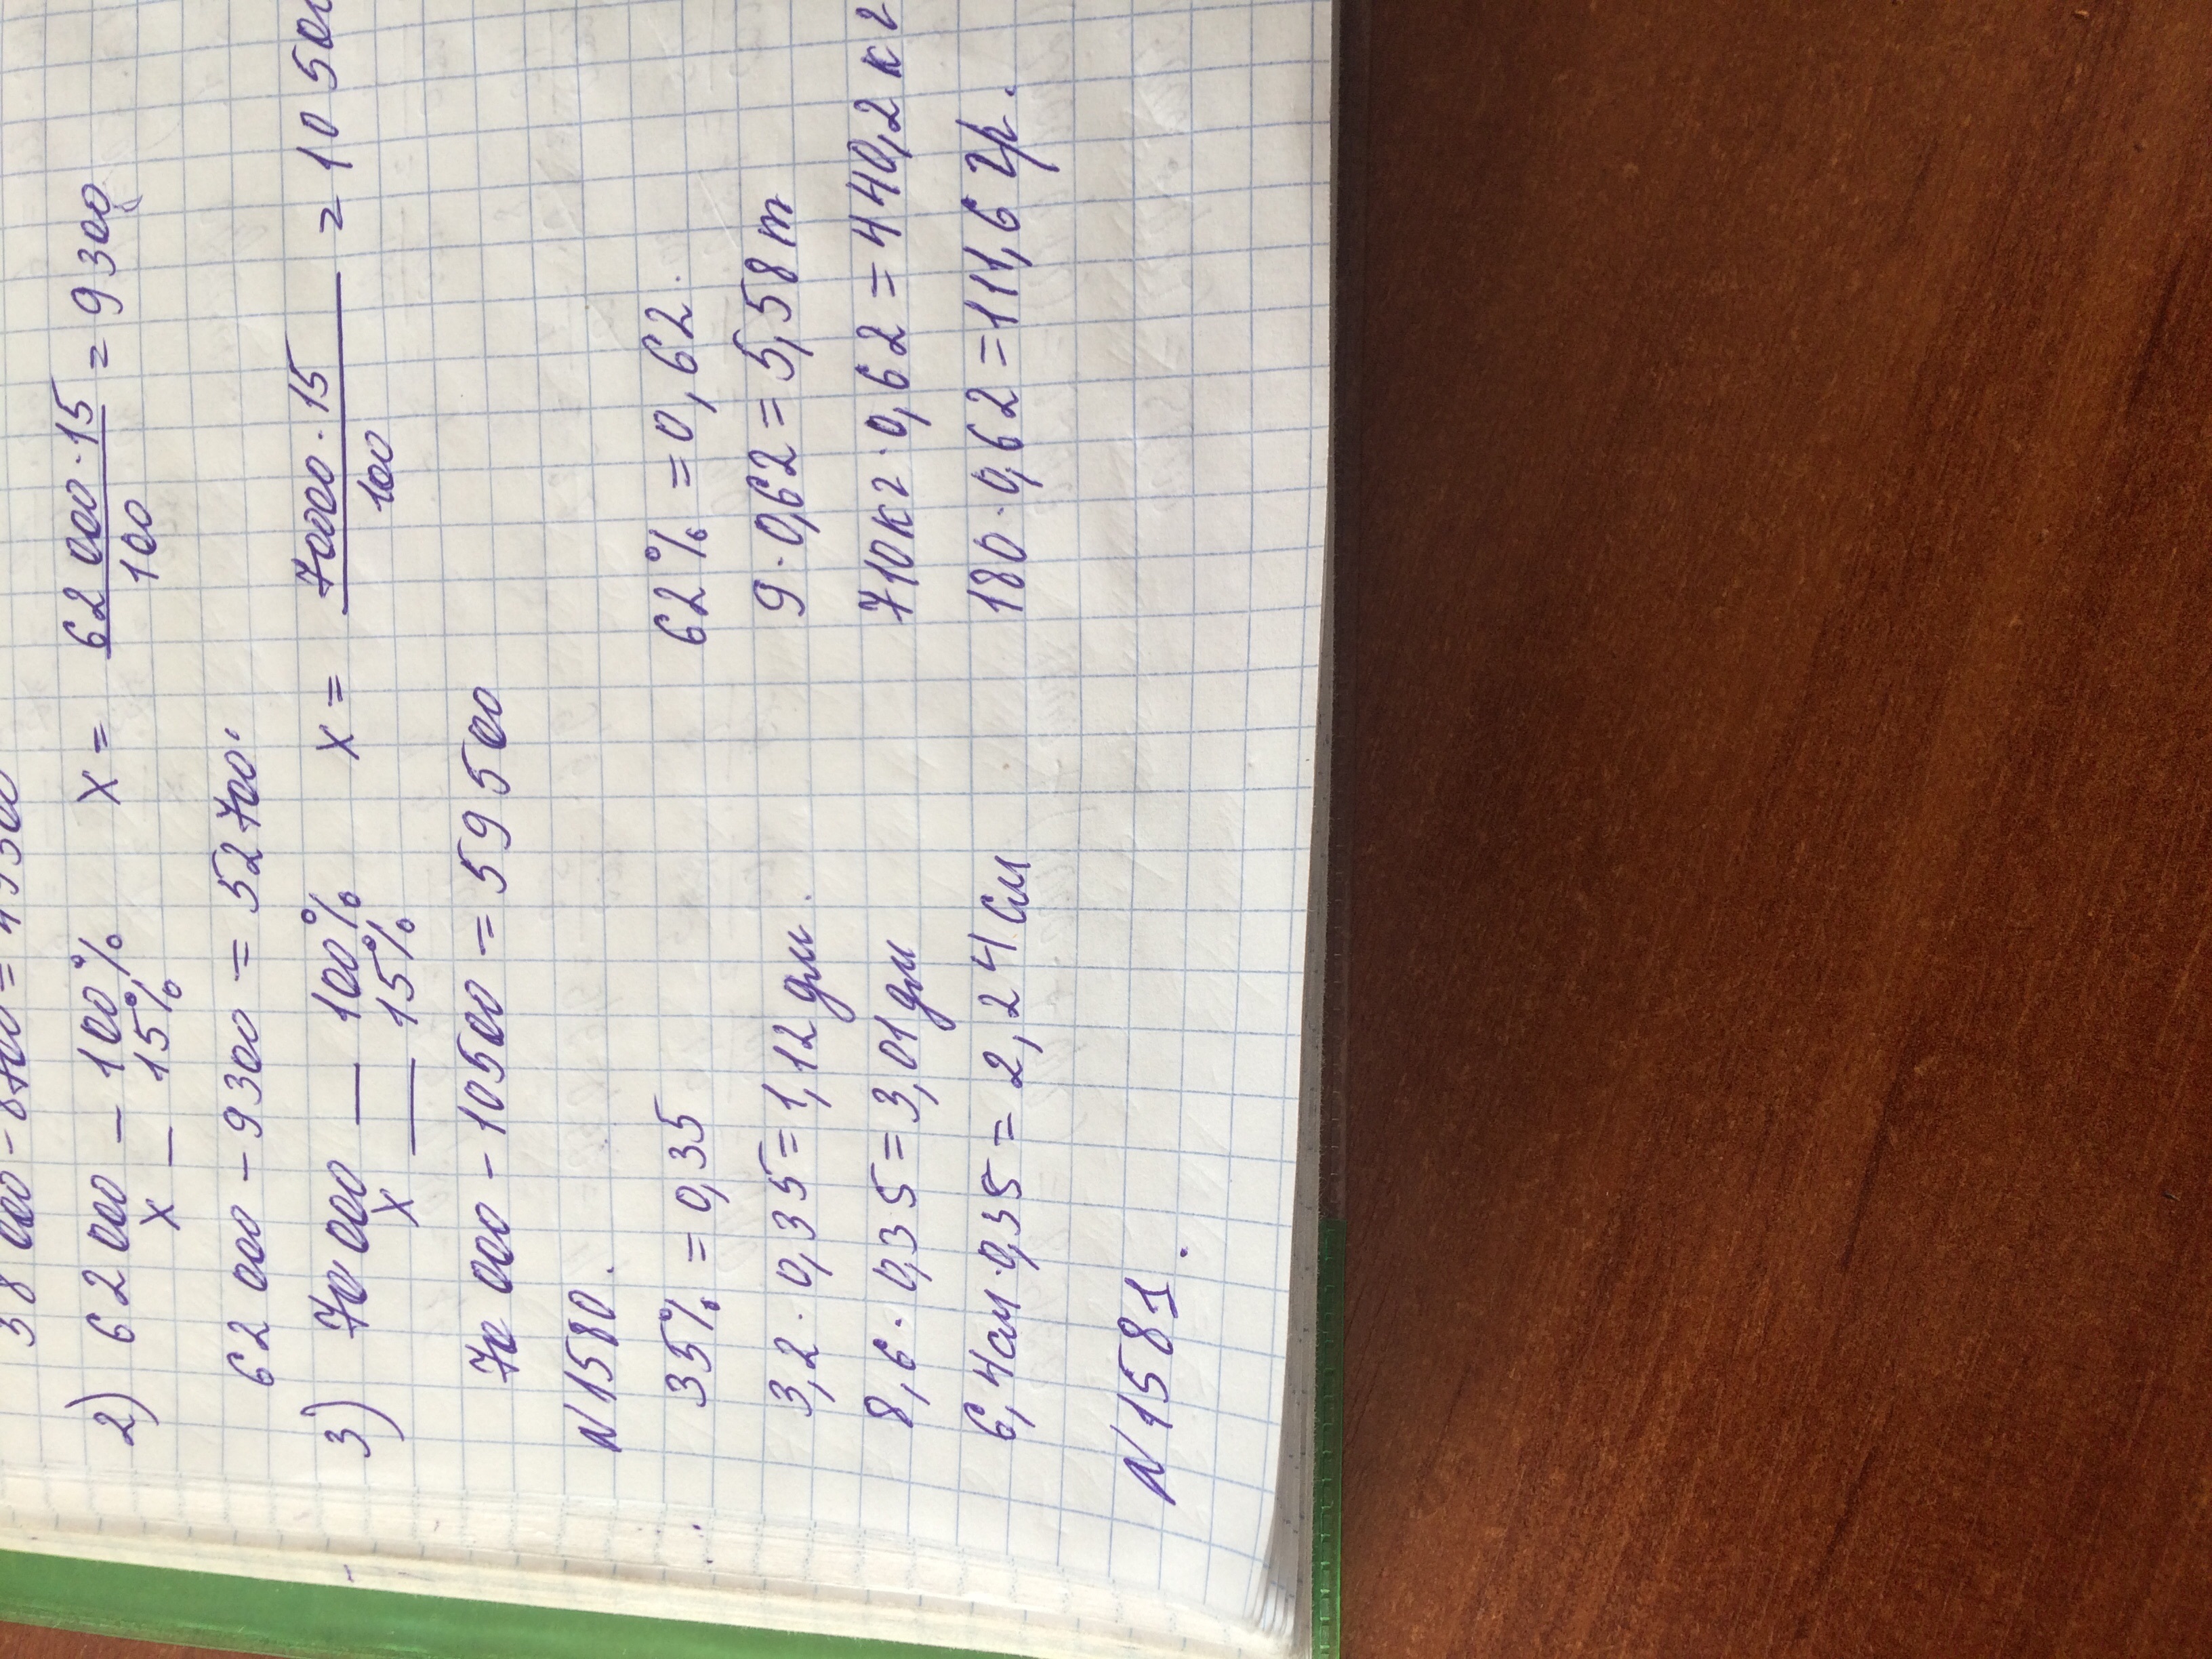 2) 62 000 — 100% x = 62 000 · 15 / 100 = 9300
x — 15%
62 000 - 9300 = 52 700.
3) 70 000 — 100% x = 70000 · 15 / 100 = 10 500
x — 15%
70 000 - 10500 = 59 500
N 1580.
35% = 0,35 62% = 0,62.
3,2 · 0,35 = 1,12 дм. 9 · 0,62 = 5,58 т
8,6 · 0,35 = 3,01 дм 710 кг · 0,62 = 440,2 кг
6,4 см · 0,35 = 2,24 см 180 · 0,62 = 111,6 гр.
N 1581.